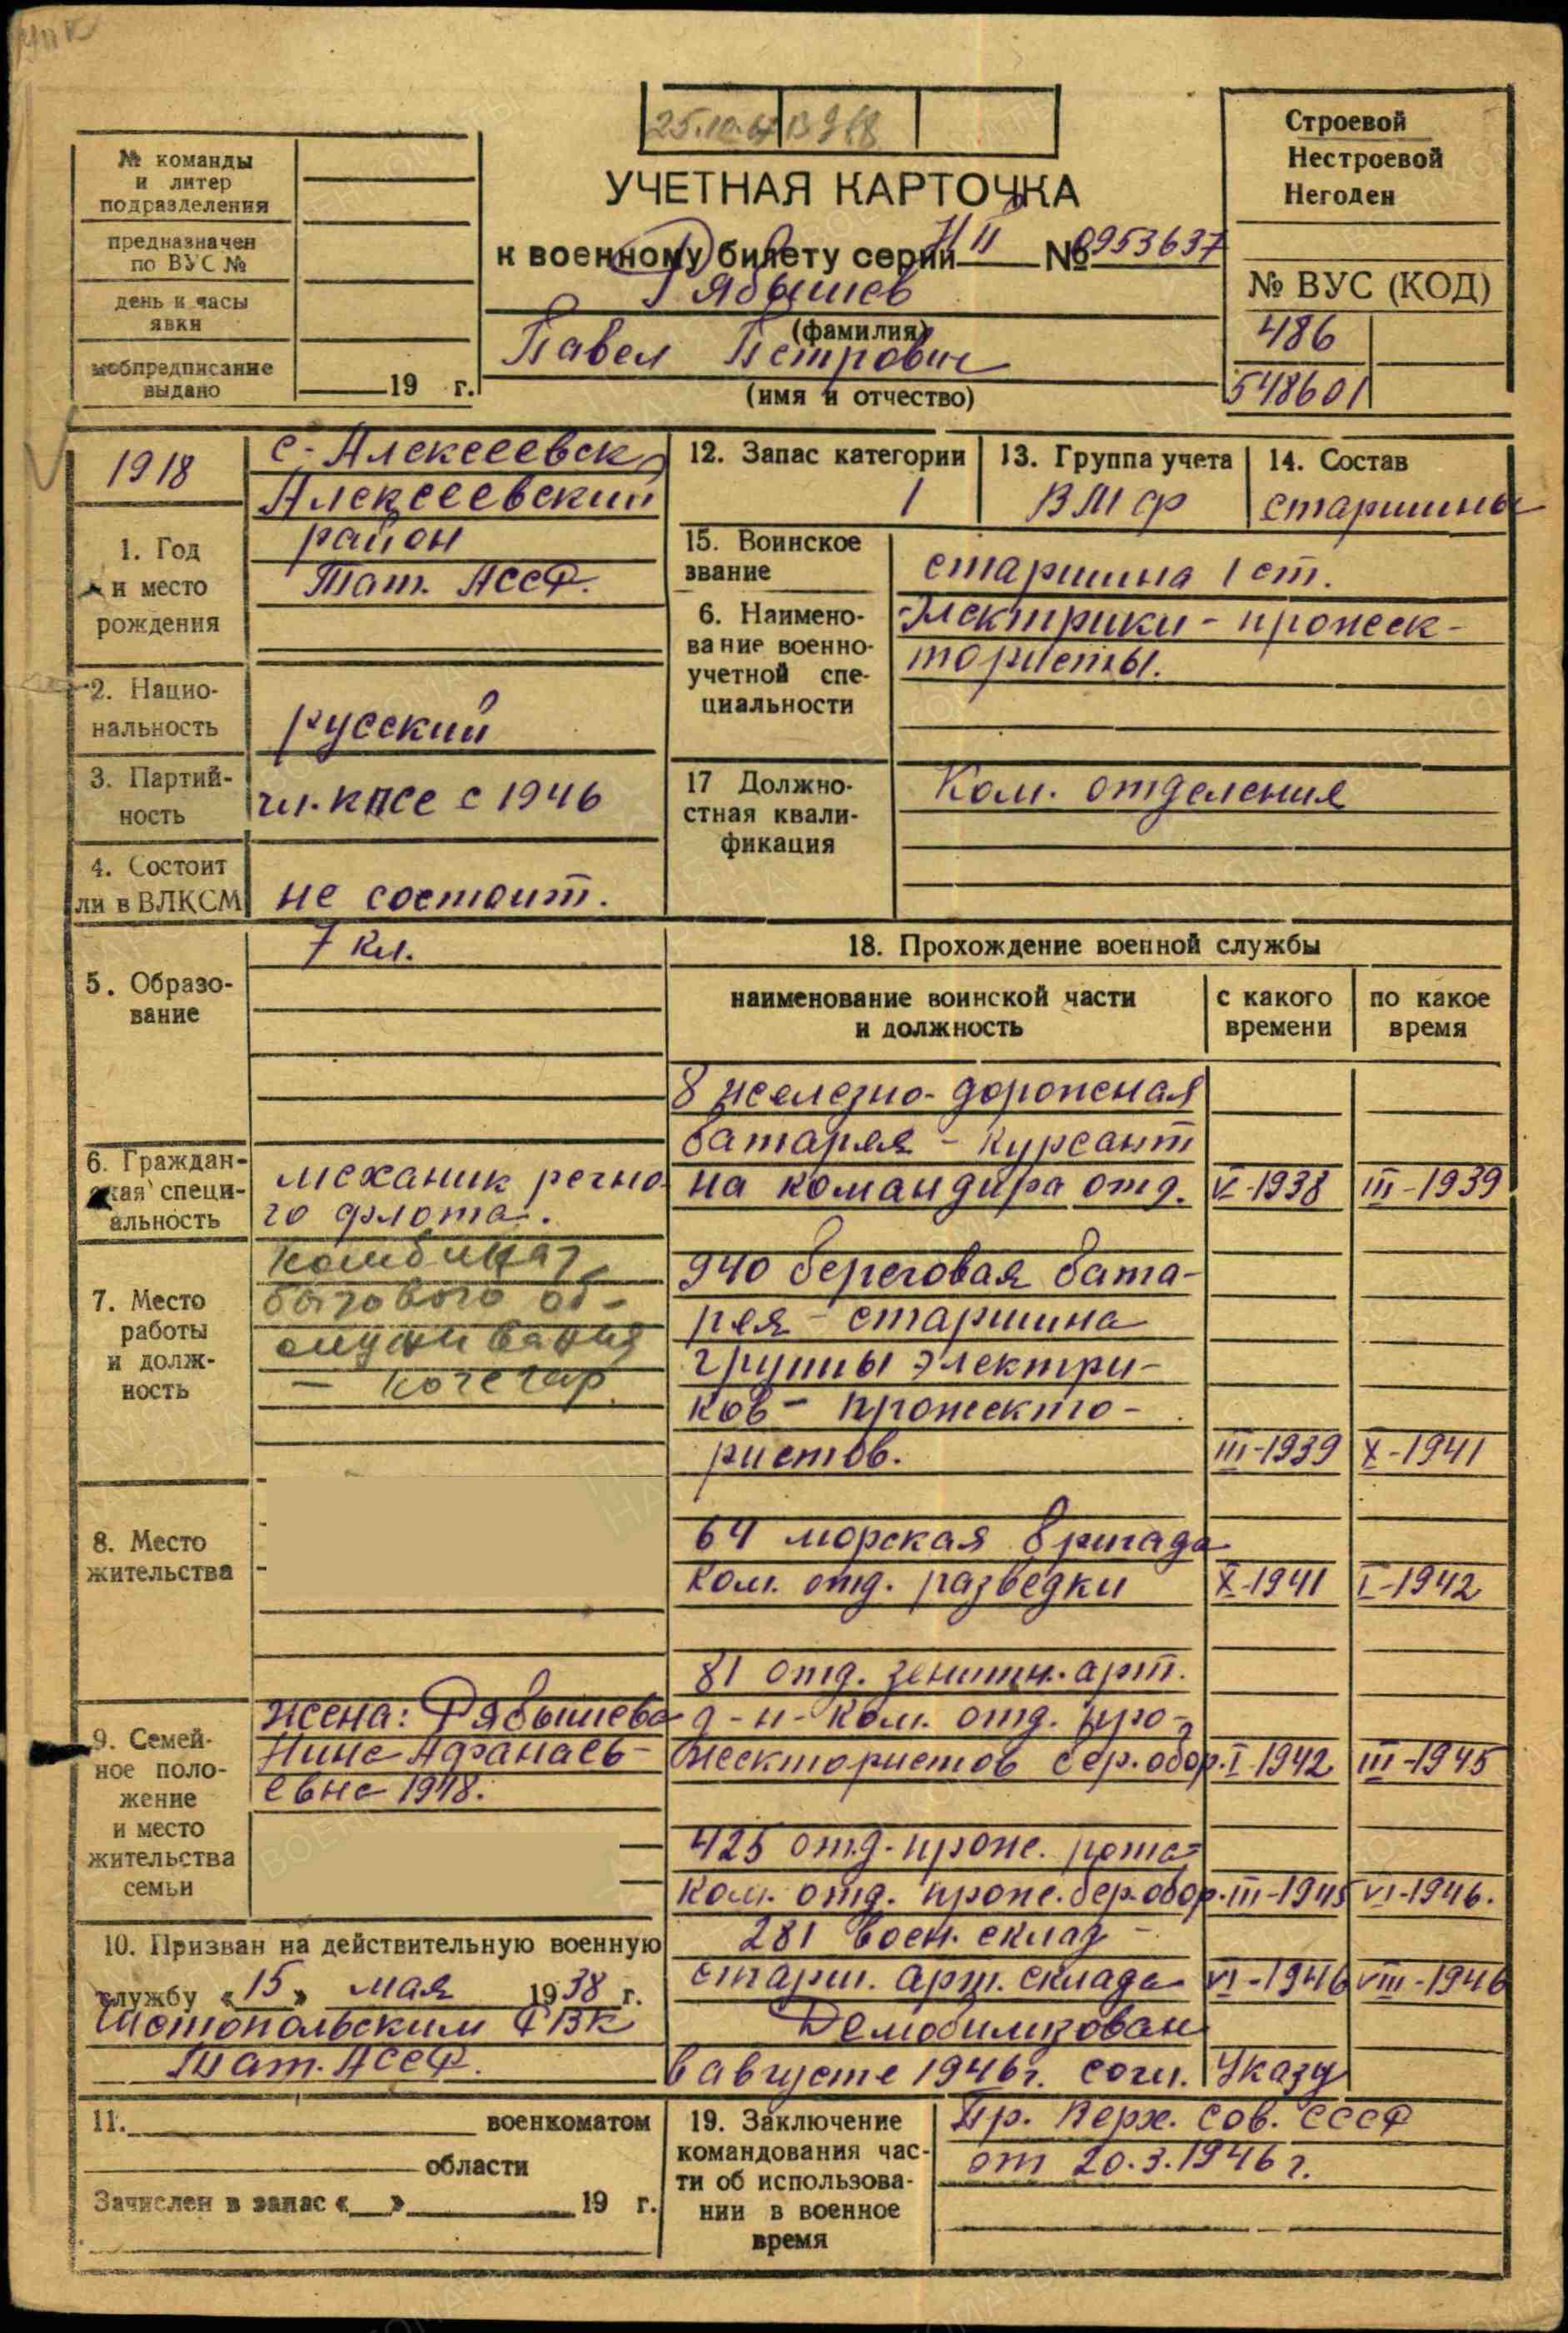 25.10.67
№ команды
и литер
подразделения
предназначен
по ВУС №
день и часы
явки
мобпредписание
выдано
19 г.
УЧЕТНАЯ КАРТОЧКА
к военному билету серии НП № 0953637
Рябышев
(фамилия)
Павел Петрович
(имя и отчество)
Строевой
Нестроевой
Негоден
№ ВУС (КОД)
486
548601
1918
1. Год
и место
рождения
с. Алексеевск
Алексеевский
район
Тат. АССР.
2. Нацио-
нальность
русский
3. Партий-
ность
чл. КПСС с 1946
4. Состоит
ли в ВЛКСМ
не состоит.
5. Образо-
вание
7 кл.
6. Граждан-
ская специ-
альность
механик речно-
го флота.
7. Место
работы
и долж-
ность
Комбинат
бытового об-
служивания
– кочегар.
8. Место
жительства
9. Семей-
ное поло-
жение
и место
жительства
семьи
жена: Рябышева
Нина Афанась-
евна 1918.
10. Призван на действительную военную
службу «15» мая 1938 г.
Чистопольским РВК
Тат. АССР.
11. военкоматом
области
Зачислен в запас « » 19 г.
12. Запас категории
1
13. Группа учета
ВМФ
14. Состав
старшины
15. Воинское
звание
старшина 1 ст.
6. Наимено-
вание военно-
учетной спе-
циальности
Электрики-прожек-
тористы.
17 Должно-
стная квали-
фикация
Ком. отделения
18. Прохождение военной службы
наименование воинской части
и должность
с какого
времени
по какое
время
8 железно-дорожная
батарея - курсант
на командира отд. V-1938 III-1939
940 береговая бата-
рея - старшина
группы электри-
ков - прожекто-
ристов. III-1939 X-1941
64 морская бригада
ком. отд. разведки X-1941 I-1942
81 отд. зенитн. арт.
д-н - ком. отд. про-
жектористов бер. обор. I-1942 III-1945
425 отд. прож. рота-
ком. отд. прож. бер. обор. III-1945 VI-1946.
281 воен. склад -
старш. арт. склада VI-1946 VIII-1946
Демобилизован
в августе 1946г. согл. Указу
19. Заключение
командования час-
ти об использова-
нии в военное
время
Пр. Верх. Сов. СССР
от 20.3.1946 г.